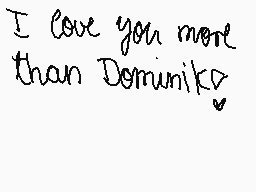 I love you more
than Dominik♡
♥